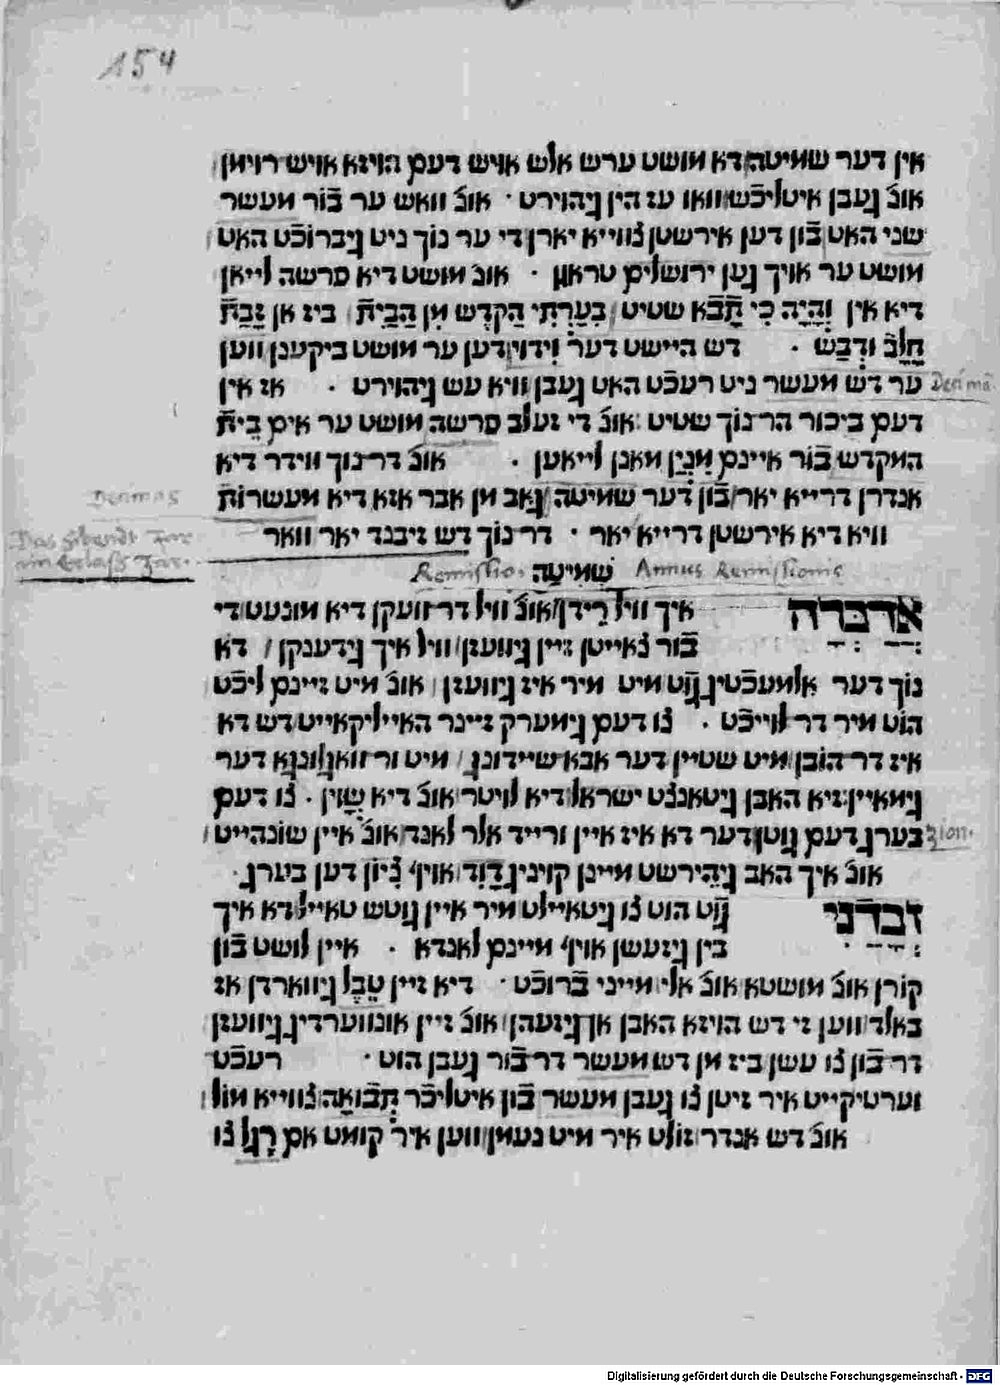 154
אין דער שמיטה דא מושט ערש אלש אויש דעם הויזא אויש רוימן
אונ׳ געבן איטליכש וואו עז הין גיהוירט · אונ׳ וואש ער בֿור מעשר
שני האט בֿון דען אירשטן צווייא יארן די ער נוך ניט גיברוכט האט
מושט ער אויך געז ירושלים טראגן · אונ׳ מושט דיא פרשה לייאן
דיא אין וְהָיָה כִּי תָבֹא שטיט בִּעַרְתִּי הַקֹּדֶשׁ מִן הַבַּיִת ביז אן זָבַת
חָלָב וּדְבַשׁ · דש היישט דער וִידוּי דען ער מושט ביקענן ווען
ער דש מעשר ניט רעכֿט האט געבן וויא עש גיהוירט · אז אין
דעם ביכור הר נוך שטיט אונ׳ די זעלב פרשה מושט ער אים בֵּית
המקדש בֿור איינם מִנְיַן מאנן לייאען · אונ׳ דר נוך ווידר דיא
אנדרן דרייא יאר בֿון דער שמיטה גאב מן אבר אזא דיא מעשרות
וויא דיא אירשטן דרייא יאר · דר נוך דש זיבנד יאר וואר
Decimas
Das sibendt Jar
ein Erlass Jar.
Remissio. שְׁמִיטָה Annus Remissionis
אֲדַבְּרָה איך וויל רֵידן אונ׳ וויל דר וועקן דיא מונעט די
בֿור צייטן זיין גיוועזן וויל איך גידענקן דא
נוך דער אלמעכטיג גוט מיט מיר איז גיוועזן אונ׳ מיט זיינם ליכֿט
הוט מיר דר לוייכֿט · צו דעם גימערק זיינר הייליקייט דש דא
איז דר הובן מיט שטיין דער אבא שיידונג מיט ור וואנלונגא דער
גימאיין זיא האבן גיטאנצט ישראל דיא לויטר אונ׳ דיא שׁוֵין · צו דעם
בערג דעם גוטן דער דא איז איין ורייד אלר לאנד אונ׳ איין שונהייט zion.
אונ׳ איך האב גיהירשט מיינן קויניג דָוִד אויף צִיוֹן דען בערג ·
זְבָדַנִי גוט הוט צו גיטאיילט מיר איין גוטש טאייל דא איך
בין גיזעשן אויף מיינם לאנדא · איין לושט בֿון
קורן אונ׳ מושטא אונ׳ אלי מייני בֿרוכֿט · דיא זיין טֶבֶל גיווארדן אז
באלד ווען זי דש הויזא האבן אן גיזעהן אונ׳ זיין אונווערדיג גיוועזן
דר בֿון צו עשן ביז מן דש מעשר דר בֿור געבן הוט · רעכֿט
וערטיקייט איר זיטן צו געבן מעשר בֿון איטליכֿר תְּבוּאָה צווייא מול
אונ׳ דש אנדר זולט איר מיט נעמן ווען איר קומט אם רֶגֶל צו
Digitalisierung gefördert durch die Deutsche Forschungsgemeinschaft - DFG